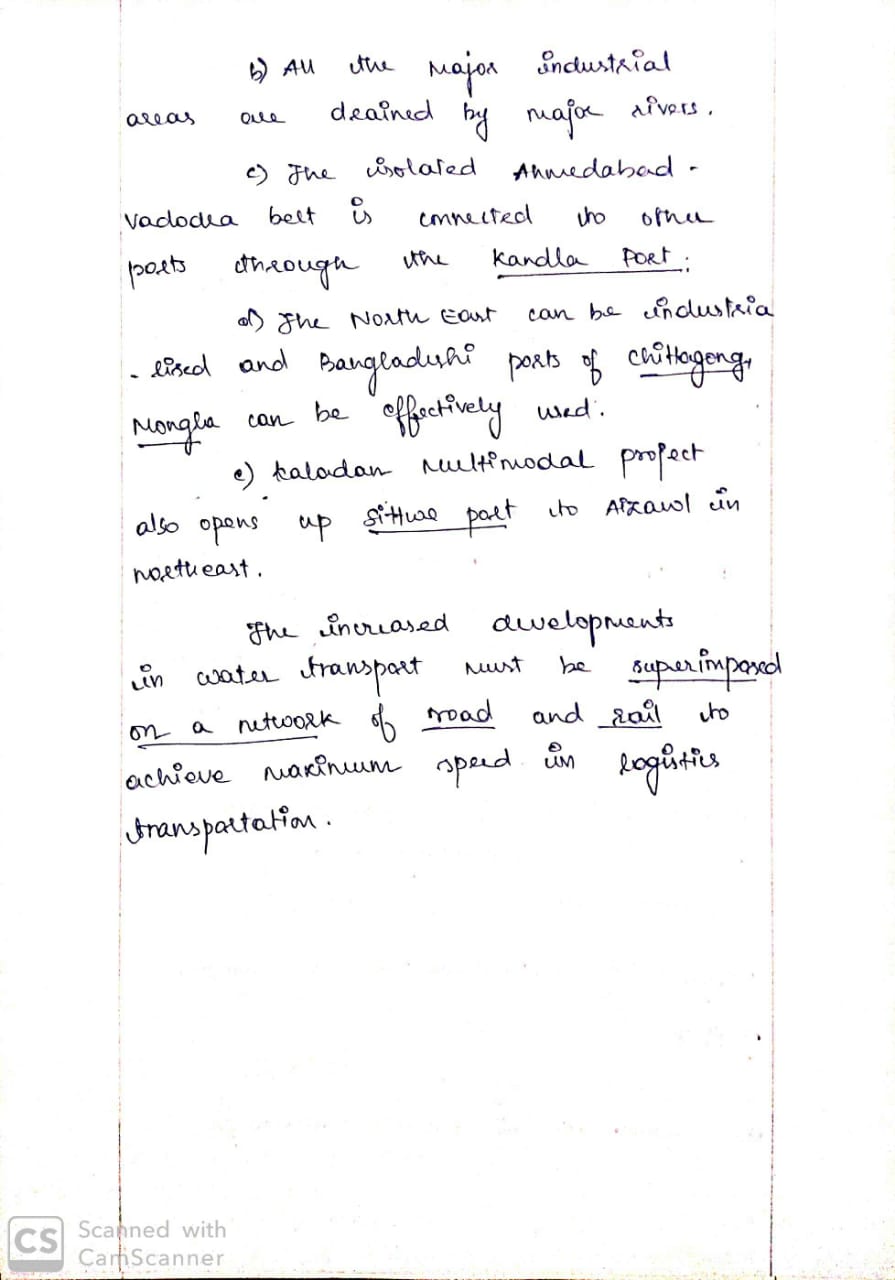 b) All the major industrial
areas are drained by major rivers.
c) The isolated Ahmedabad -
Vadodra belt is connected to other
ports through the Kandla Port;
d) The North East can be industria
- lised and Bangladeshi ports of Chittagong,
Mongla can be effectively used.
e) Kaladan Multimodal project
also opens up Sittwe port to Aizawl in
northeast.
The increased developments
in water transport must be superimposed
on a network of road and rail to
achieve maximum speed in logistics
transportation.
CS Scanned with
CamScanner